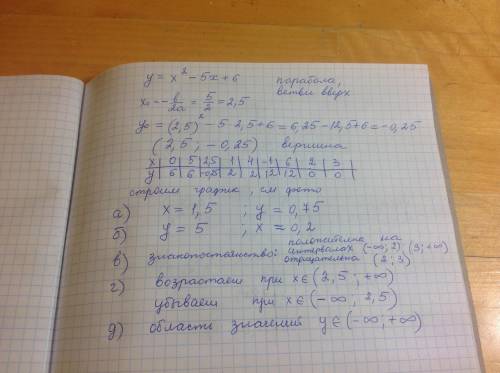 y = x² - 5x + 6 парабола,
ветви вверх
x₀ = - b/2a = 5/2 = 2,5
y₀ = (2,5)² - 5 · 2,5 + 6 = 6,25 - 12,5 + 6 = -0,25
(2,5 ; -0,25) вершина
x | 0 | 5 | 2,5 | 1 | 4 | -1 | 6 | 2 | 3
y | 6 | 6 | -0,25 | 2 | 2 | 12 | 12 | 0 | 0
строим график, см фото
а) x = 1,5 ; y = 0,75
б) y = 5 ; x = 0,2
в) знакопостоянство: положительна на интервалах (-∞; 2) (3; +∞)
отрицательна (2; 3)
г) возрастает при x ∈ (2,5 ; +∞)
убывает при x ∈ (-∞ ; 2,5)
д) область значений y ∈ (-∞ ; +∞)